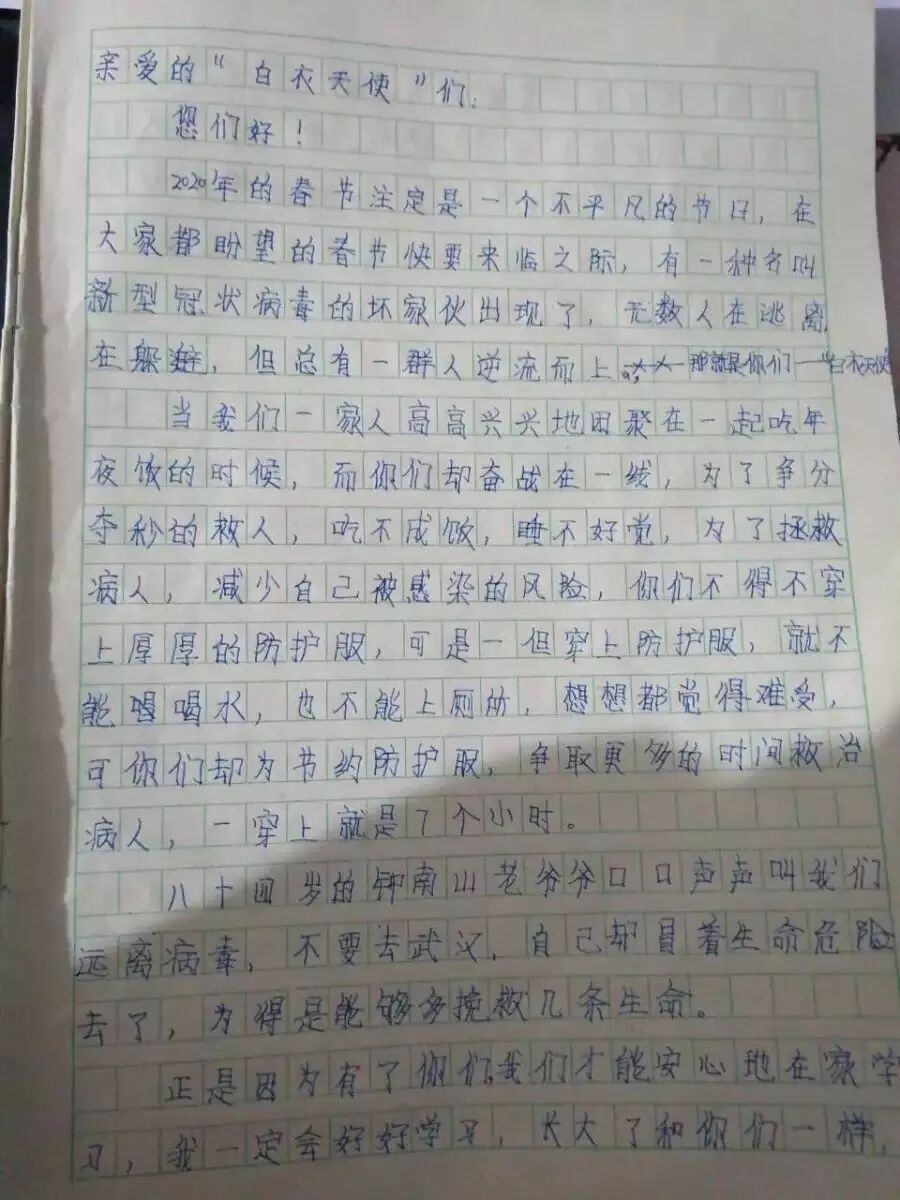 亲爱的“白衣天使”们：
您们好！
2020年的春节注定是一个不平凡的节日，在
大家都盼望的春节快要来临之际，有一种名叫
新型冠状病毒的坏家伙出现了，无数人在逃离
在躲避，但总有一群人逆流而上。那就是你们——白衣天使
当我们一家人高高兴兴地团聚在一起吃年
夜饭的时候，而你们却奋战在一线，为了争分
夺秒的救人，吃不成饭，睡不好觉，为了拯救
病人，减少自己被感染的风险，你们不得不穿
上厚厚的防护服，可是一但穿上防护服，就不
能喝喝水，也不能上厕所，想想都觉得难受，
可你们却为节约防护服，争取更多的时间救治
病人，一穿上就是7个小时。
八十四岁的钟南山老爷爷口口声声叫我们
远离病毒，不要去武汉，自己却冒着生命危险
去了，为得是能够多挽救几条生命。
正是因为有了你们，我们才能安心地在家学
习，我一定会好好学习，长大了和你们一样，